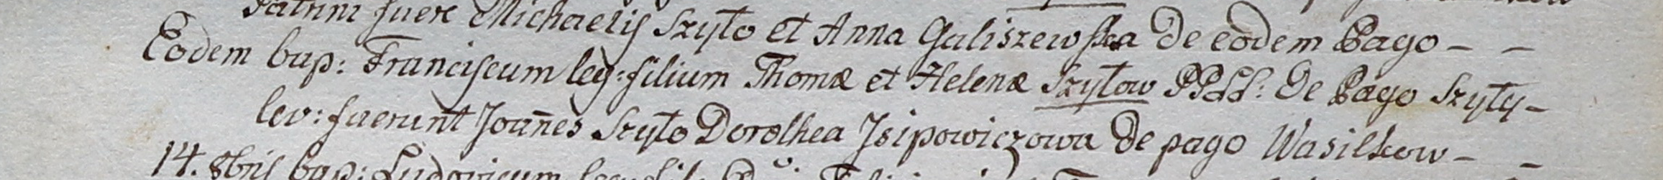 Patrini fuere Michaelis Szyło et Anna Galiszewska de eodem Pago - -
Eodem bap: Franciscum leg: filium Thomæ et Helenæ Szyłow PPLL: De Pago Szyły -
lev: fuerunt Joan̄es Szyło Dorothea Jsipowiczowa De pago Wasilkow - -
14. 8bris bap: Ludovicum